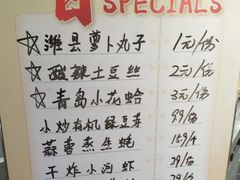 SPECIALS
☆潍县萝卜丸子 1元/份
☆酸辣土豆丝 2元/份
☆青岛小花蛤 3元/份
小炒有机绿豆芽 9.9/份
蒜蓉蒸生蚝 15.9/4
干炸小河虾 29/份